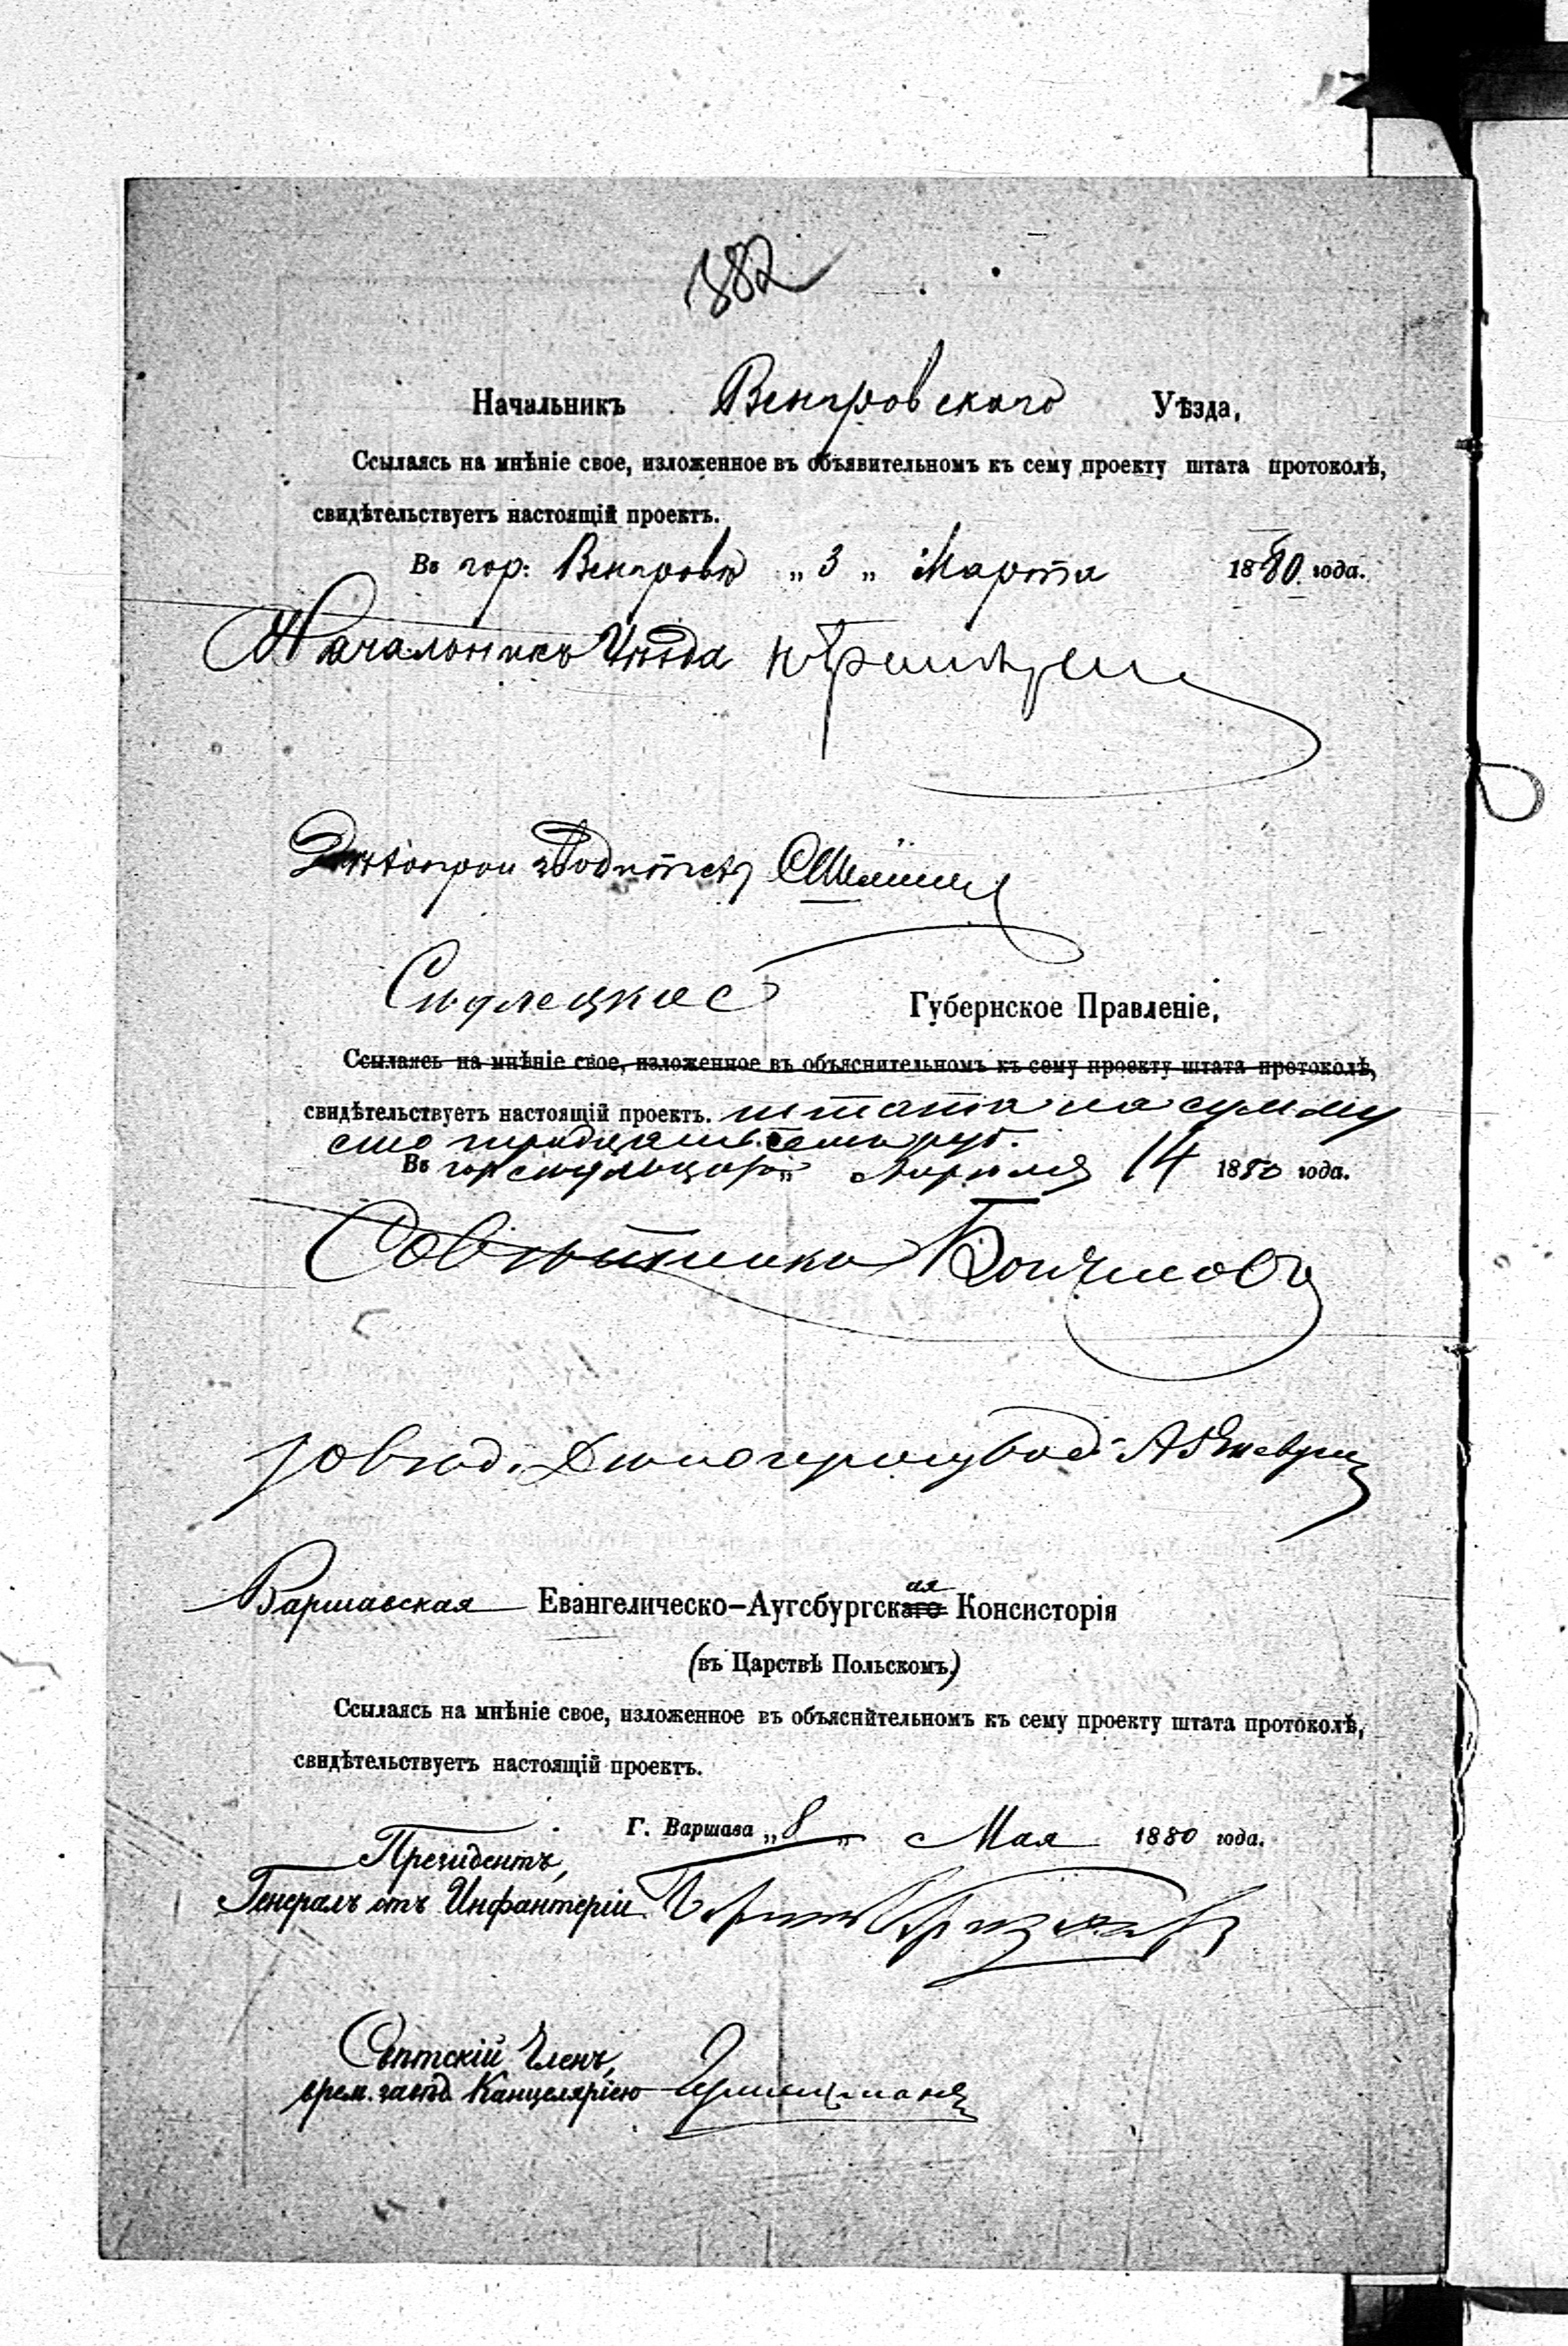 382
Начальникъ Венгровскаго Уѣзда,
Ссылаясь на мнѣніе свое, изложенное въ объявительномъ къ сему проекту штата протоколѣ,
свидѣтельствуетъ настоящій проектъ.
Въ гор: Венгровѣ „ 3 „ Марта 1880 года.
Начальникъ Уѣзда
Дѣлопроизводитель
Сѣдлецкое Губернское Правленіе,
Ссылаясь на мнѣніе свое, изложенное въ объяснительномъ къ сему проекту штата протоколѣ,
свидѣтельствуетъ настоящій проектъ. штата на сумму
сто тридцать семь руб.
Въ гор Сѣдльцахъ „ Апрѣля 14 1880 года.
Совѣтникъ
Варшавская Евангелическо-Аугсбургскаго ая Консисторія
(въ Царствѣ Польскомъ)
Ссылаясь на мнѣніе свое, изложенное въ объяснительномъ къ сему проекту штата протоколѣ,
свидѣтельствуетъ настоящій проектъ.
Г. Варшава „ 8 „ Мая 1880 года.
Президентъ,
Генералъ отъ Инфантеріи
Свѣтскій Членъ,
врем. завѣд. Канцеляріею